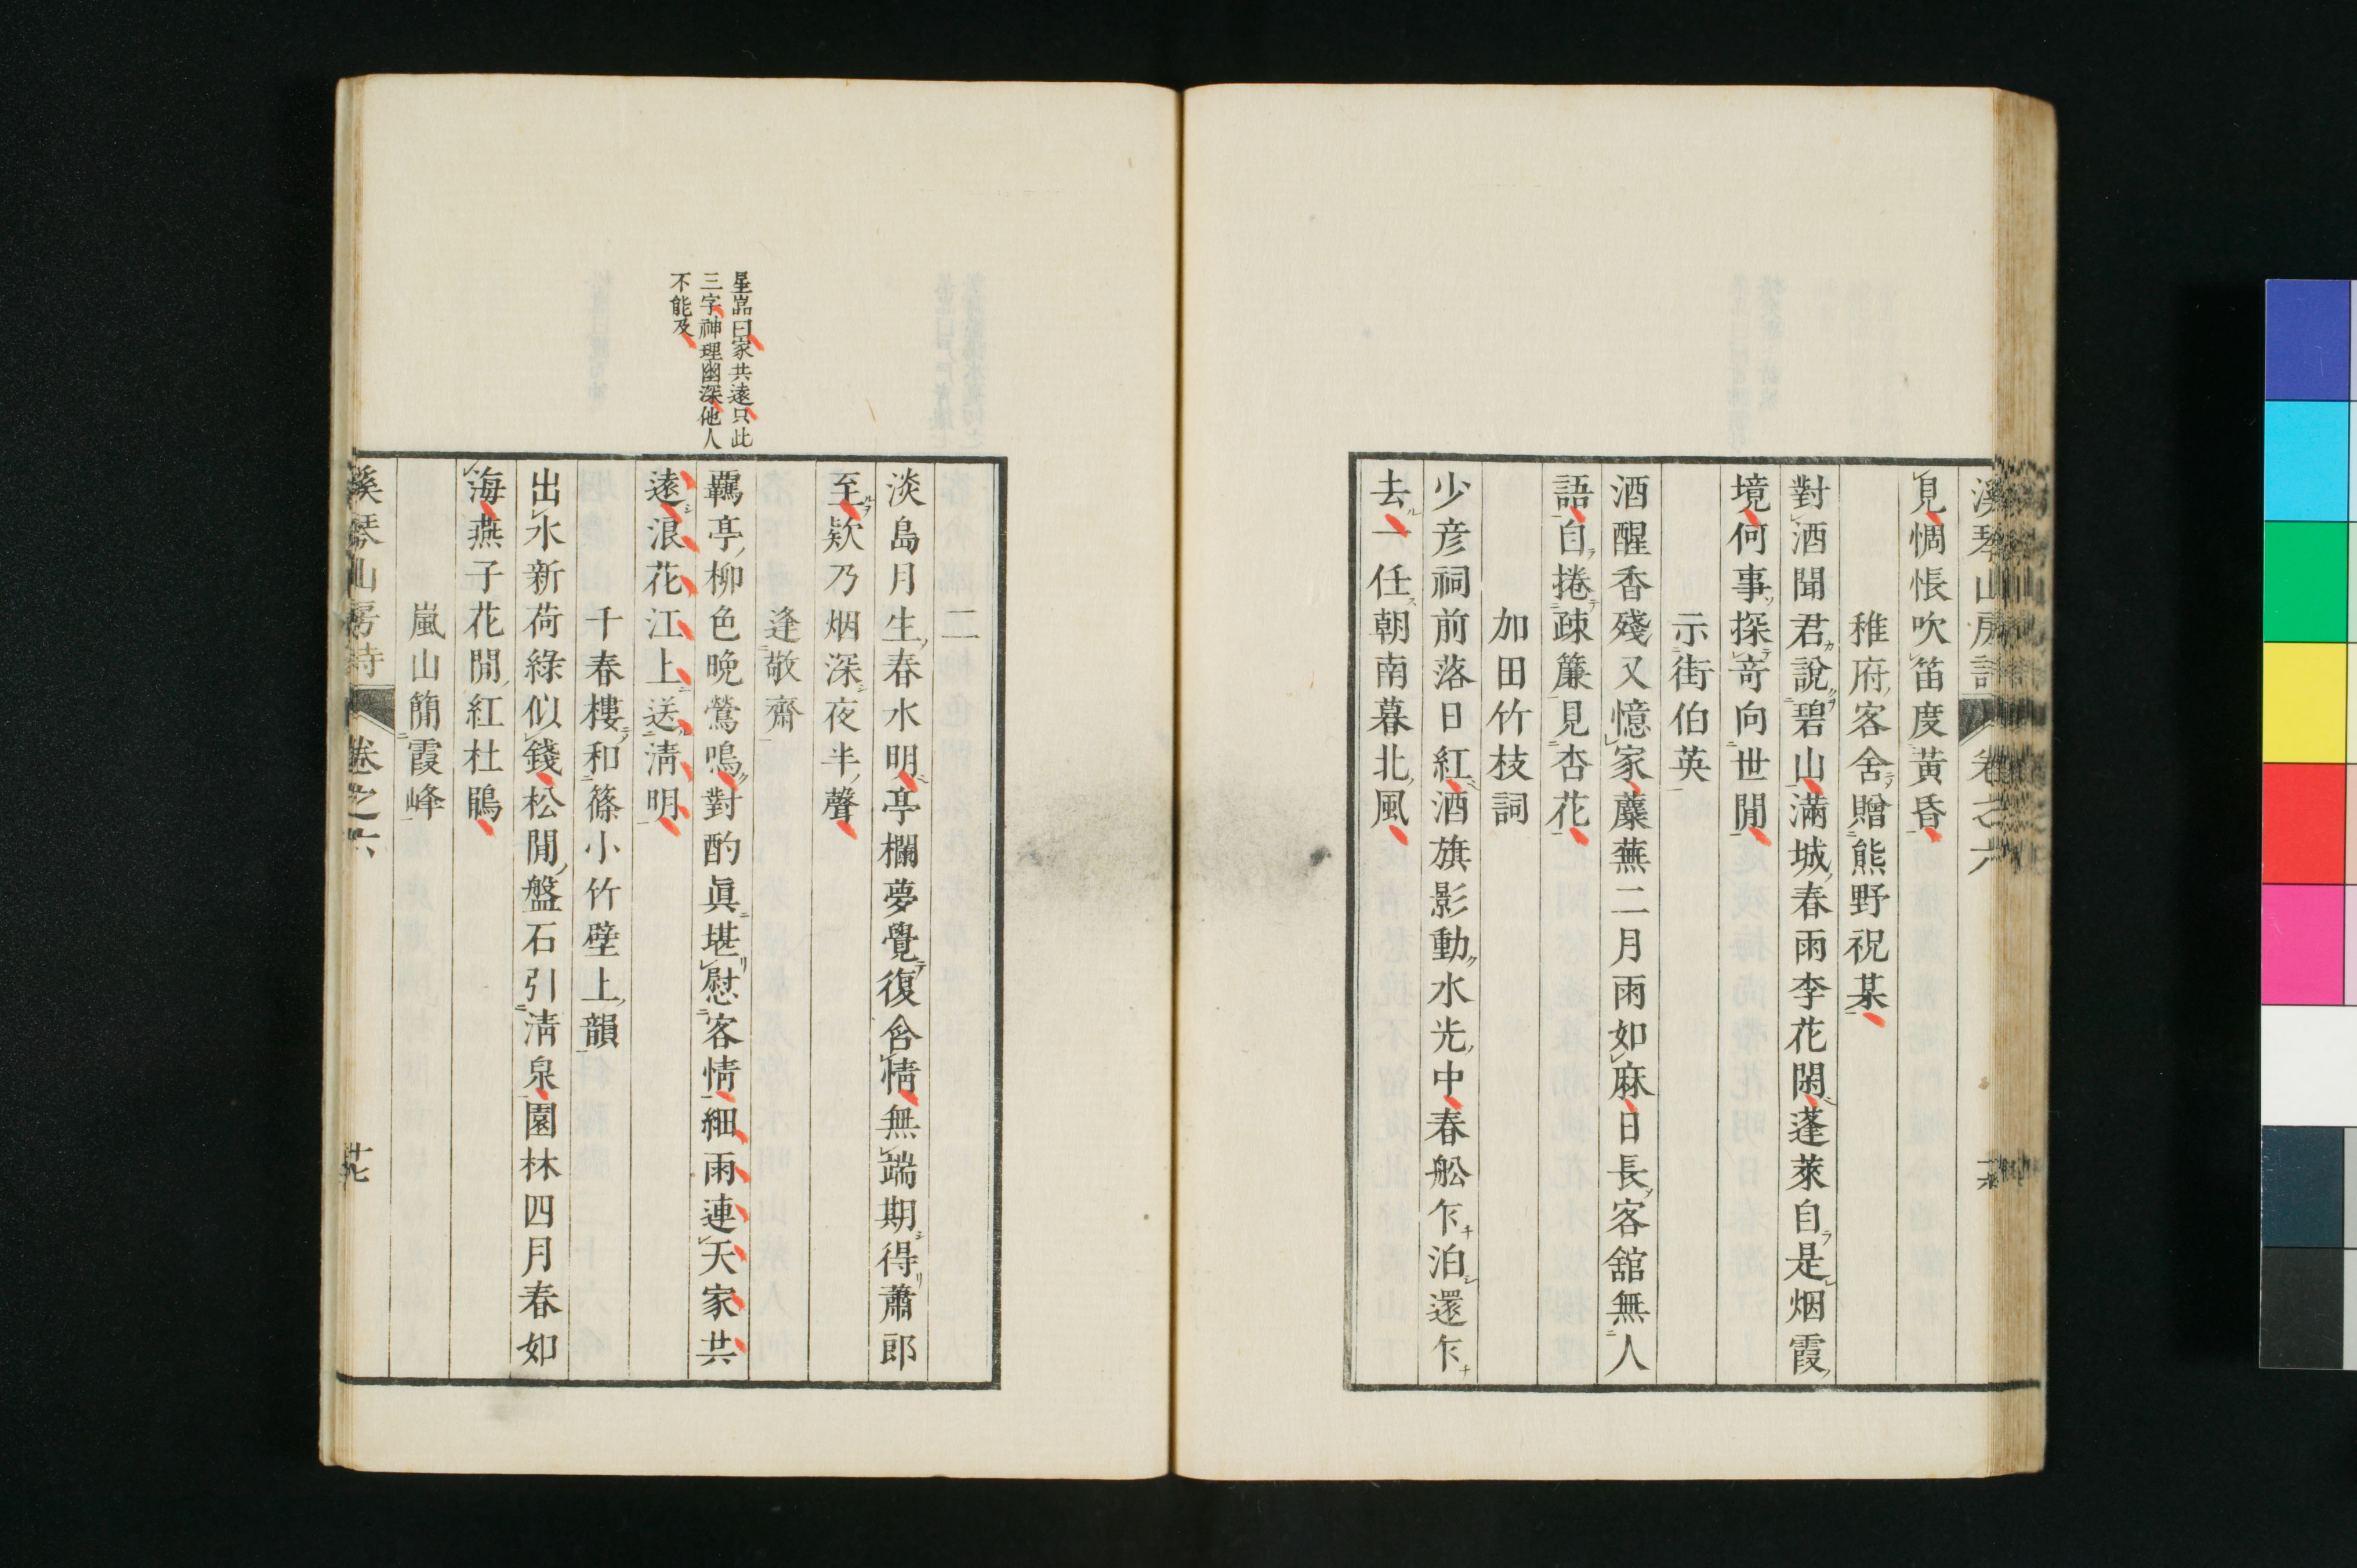 溪琴山房詩 卷之六
見惆悵吹笛度黃昏
稚府客舍贈熊野祝某
對酒聞君說碧山滿城春雨李花閑蓬萊自是烟霞
境何事探奇向世閒
示街伯英
酒醒香殘又憶家蘪蕪二月雨如麻日長客舘無人
語自捲疎簾見杏花
加田竹枝詞
少彦祠前落日紅酒旗影動水光中春舩乍泊還乍
去一任朝南暮北風
二
淡島月生春水明亭欄夢覺復含情無端期得蕭郎
至欸乃烟深夜半聲
逢敬齋
星嵓曰家共遠只此
三字神理幽深他人
不能及
羈亭柳色晚鶯鳴對酌眞堪慰客情細雨連天家共
遠浪花江上送淸明
千春樓和篠小竹壁上韻
出水新荷綠似錢松閒盤石引淸泉園林四月春如
海燕子花開紅杜鵑
嵐山簡霞峰
溪琴山房詩 卷之六